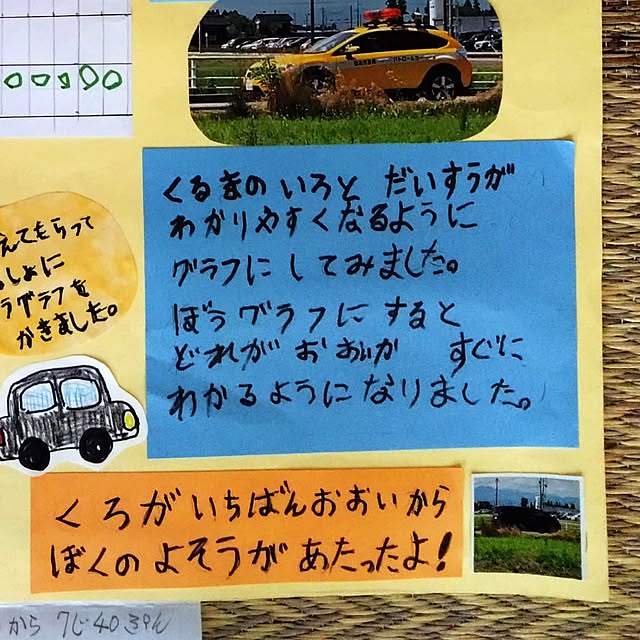 くるまのいろと だいすうが
わかりやすくなるように
グラフにしてみました。
ぼうグラフにすると
どれがおおいか すぐに
わかるようになりました。
えてもらって
しょに
うグラフを
かきました。
くろがいちばんおおいから
ぼくのよそうがあたったよ!
から 7じ40ぷん